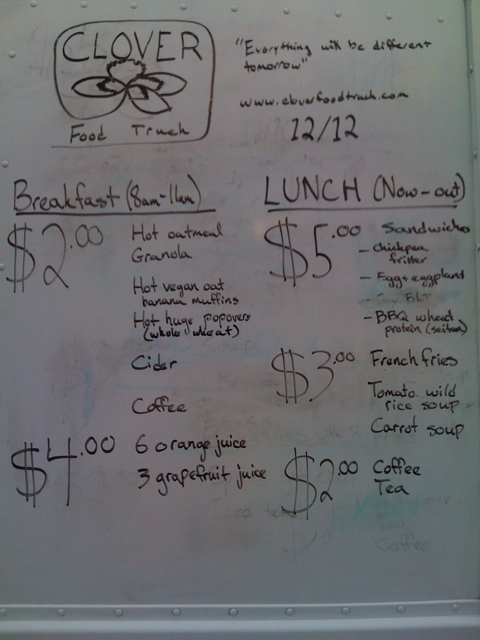 CLOVER
Food Truck
"Everything will be different
tomorrow"
www.cloverfoodtruck.com
12/12
Breakfast (8am-11am)
$2.00
Hot oatmeal
Granola
Hot vegan oat
banana muffins
Hot huge popovers
(whole wheat)
Cider
Coffee
$4.00
6 orange juice
3 grapefruit juice
LUNCH (Now-out)
$5.00
Sandwiches
- Chickpea
fritter
- Egg & eggplant
- Soy BLT
- BBQ wheat
protein (seitan)
$3.00
French fries
Tomato wild
rice soup
Carrot soup
$2.00
Coffee
Tea
Coffee